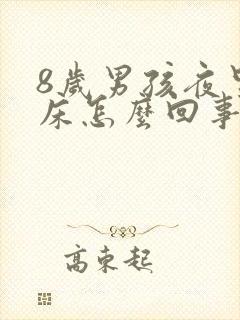 8歲男孩夜
床怎麼回事
高東起